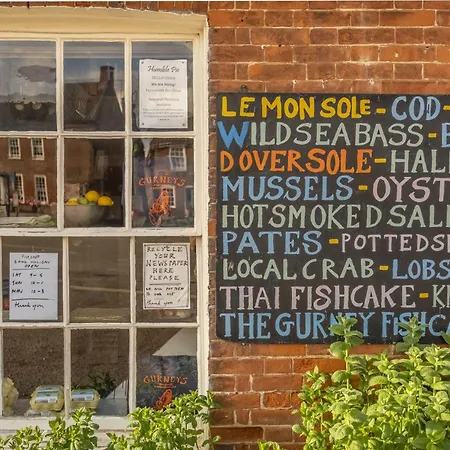 Humble Pie
WE ARE
HIRING
GURNEYS
OPEN
BANK HOLIDAY
thank you
RECYCLE
YOUR
NEWSPAPER
HERE
PLEASE
GURNEYS
LEMON SOLE - COD -
WILD SEA BASS - B
DOVER SOLE - HAL
MUSSELS - OYST
HOT SMOKED SAL
PATES - POTTED S
LOCAL CRAB - LOBS
THAI FISHCAKE - K
THE GURNEY FISHC